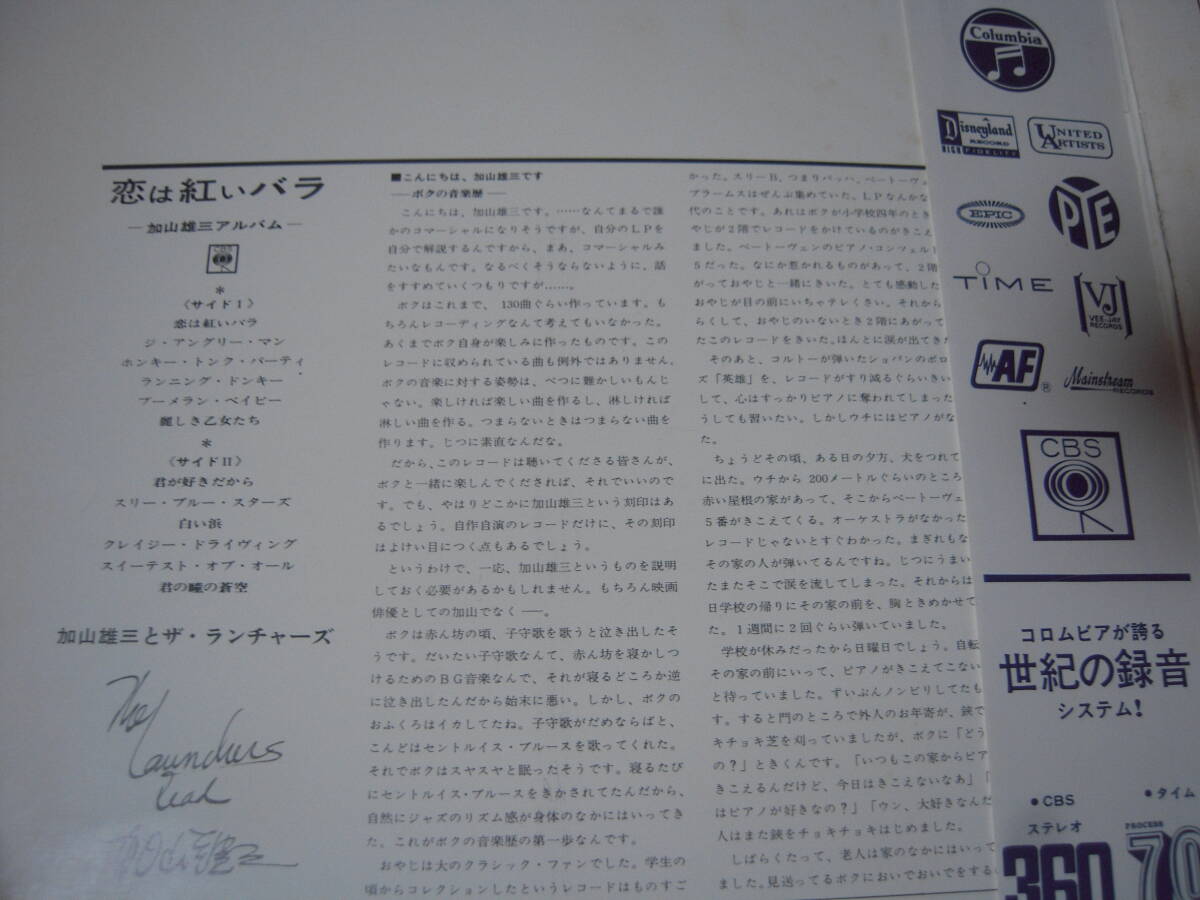 恋は紅いバラ
—加山雄三アルバム—
CBS
*
《サイドⅠ》
恋は紅いバラ
ジ・アングリー・マン
ホンキー・トンク・パーティ
ランニング・ドンキー
ブーメラン・ベイビー
麗しき乙女たち
*
《サイドⅡ》
君が好きだから
スリー・ブルー・スターズ
白い浜
クレイジー・ドライヴィング
スイーテスト・オブ・オール
君の瞳の蒼空
加山雄三とザ・ランチャーズ
The
Launchers
Lead
加山雄三
■こんにちは、加山雄三です
—ボクの音楽歴—
こんにちは、加山雄三です。……なんてまるで誰
かのコマーシャルになりそうですが、自分のLPを
自分で解説するんですから、まあ、コマーシャルみ
たいなもんです。なるべくそうならないように、話
をすすめていくつもりですが……。
ボクはこれまで、130曲ぐらい作っています。も
ちろんレコーディングなんて考えてもいなかった。
あくまでボク自身が楽しみに作ったものです。この
レコードに収められている曲も例外ではありません。
ボクの音楽に対する姿勢は、べつに難かしいもんじ
ゃない。楽しければ楽しい曲を作るし、淋しければ
淋しい曲を作る。つまらないときはつまらない曲を
作ります。じつに素直なんだな。
だから、このレコードは聴いてくださる皆さんが、
ボクと一緒に楽しんでくだされば、それでいいので
す。でも、やはりどこかに加山雄三という刻印はあ
るでしょう。自作自演のレコードだけに、その刻印
はよけい目につく点もあるでしょう。
というわけで、一応、加山雄三というものを説明
しておく必要があるかもしれません。もちろん映画
俳優としての加山でなく——。
ボクは赤ん坊の頃、子守歌を歌うと泣き出したそ
うです。だいたい子守歌なんて、赤ん坊を寝かしつ
けるためのBG音楽なんで、それが寝るどころか逆
に泣き出したんだから始末に悪い。しかし、ボクの
おふくろはイカしてたね。子守歌がだめならばと、
こんどはセントルイス・ブルースを歌ってくれた。
それでボクはスヤスヤと眠ったそうです。寝るたび
にセントルイス・ブルースをきかされてたんだから、
自然にジャズのリズム感が身体のなかにはいってき
た。これがボクの音楽歴の第一歩なんです。
おやじは大のクラシック・ファンでした。学生の
頃からコレクションしたというレコードはものすご
かった。スリーB、つまりバッハ、ベートーヴェ
ブラームスはぜんぶ集めていた。LPなんかな
代のことです。あれはボクが小学校四年のとき
やじが2階でレコードをかけているのがきこえ
ました。ベートーヴェンのピアノ・コンツェルト
5だった。なにか惹かれるものがあって、2階
がっておやじと一緒にきいた。とても感動した
おやじが目の前にいちゃテレくさい。それから
らくして、おやじのいないとき2階にあがって
たこのレコードをきいた。ほんとに涙が出てきた
そのあと、コルトーが弾いたショパンのポロ
ズ「英雄」を、レコードがすり減るぐらいきい
して、心はすっかりピアノに奪われてしまった
うしても習いたい。しかしウチにはピアノがな
た。
ちょうどその頃、ある日の夕方、犬をつれて
に出た。ウチから200メートルぐらいのところ
赤い屋根の家があって、そこからベートーヴェ
5番がきこえてくる。オーケストラがなかった
レコードじゃないとすぐわかった。まぎれもな
その家の人が弾いてるんですね。じつにうまい
たまたそこで涙を流してしまった。それからは
日学校の帰りにその家の前を、胸ときめかせて
た。1週間に2回ぐらい弾いていました。
学校が休みだったから日曜日でしょう。自転
その家の前にいって、ピアノがきこえてこない
と待っていました。ずいぶんノンビリしてたも
す。すると門のところで外人のお年寄が、鋏で
キチョキ芝を刈っていましたが、ボクに「どう
の?」ときくんです。「いつもこの家からピア
きこえるんだけど、今日はきこえないなあ」「
はピアノが好きなの?」「ウン、大好きなんだ
人はまた鋏をチョキチョキはじめました。
しばらくたって、老人は家のなかにはいって
ました。見送ってるボクにおいでおいでをする
Columbia
Disneyland
RECORD
HIGH FIDELITY
UNITED
ARTISTS
EPIC
PYE
TIME
VJ
VEE-JAY
RECORDS
AF®
Mainstream
RECORDS
CBS
コロムビアが誇る
世紀の録音
システム!
●CBS
ステレオ
360
●タイム
PROCESS
70